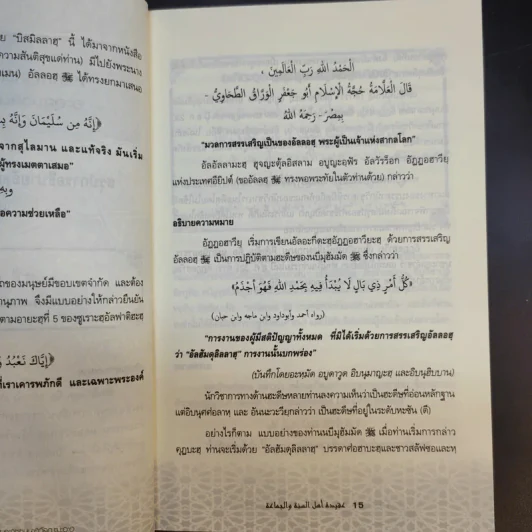 ย "บิสมิลลาฮฺ" นี้ ได้มาจากหนังสือ
ความสันติสุขแด่ท่าน) มีไปยังพระนาง
อัลลอฮฺ ﷻ ได้ทรงยกมาเสนอ
﴿إِنَّهُ مِن سُلَيْمَانَ وَإِنَّهُ بِسْ
จากสุไลมาน และแท้จริง มันเริ่ม
ผู้ทรงเมตตาเสมอ"
อความช่วยเหลือ"
ถของมนุษย์มีขอบเขตจำกัด และต้อง
านุภาพ จึงมีแบบอย่างให้กล่าวยืนยัน
ตามอายะฮฺที่ 5 ของซูเราะฮฺอัลฟาติฮะฮฺ
﴿إِيَّاكَ نَعْبُدُ
ที่เราเคารพภักดี และเฉพาะพระองค์
الْحَمْدُ لِلَّهِ رَبِّ الْعَالَمِينَ ،
قَالَ الْعَلَّامَةُ حُجَّةُ الْإِسْلَامِ أَبُو جَعْفَرٍ الْوَرَّاقُ الطَّحَاوِيُّ -
بِمِصْرَ- رَحِمَهُ اللهُ
"มวลการสรรเสริญเป็นของอัลลอฮฺ พระผู้เป็นเจ้าแห่งสากลโลก"
อัลอัลลามะฮฺ ฮุจญะตุ้ลอิสลาม อบูญะอฺฟัร อัลวัรร็อก อัฏฏอฮาวียฺ
แห่งประเทศอียิปต์ (ขออัลลอฮฺ ﷻ ทรงพอพระทัยในตัวท่านด้วย) กล่าวว่า
อธิบายความหมาย
อัฏฏอฮาวียฺ เริ่มการเขียนอัลอะกีดะฮฺอัฏฏอฮาวียะฮฺ ด้วยการสรรเสริญ
อัลลอฮฺ ﷻ เป็นการปฏิบัติตามฮะดีษของนบีมุฮัมมัด ﷺ ซึ่งกล่าวว่า
«كُلُّ أَمْرٍ ذِي بَالٍ لَا يُبْدَأُ فِيهِ بِحَمْدِ اللهِ فَهُوَ أَجْذَمُ»
(رواه أحمد وأبوداود وابن ماجه وابن حبان)
"การงานของผู้มีสติปัญญาทั้งหมด ที่มิได้เริ่มด้วยการสรรเสริญอัลลอฮฺ
ว่า "อัลฮัมดุลิลลาฮฺ" การงานนั้นบกพร่อง"
(บันทึกโดยอะหฺมัด อบูดาวูด อิบนุมาญะฮฺ และอิบนุฮิบบาน)
นักวิชาการทางด้านฮะดีษหลายท่านลงความเห็นว่าเป็นฮะดีษที่อ่อนหลักฐาน
แต่อิบนุศศ่อลาหฺ และ อันนะวะวียฺกล่าวว่า เป็นฮะดีษที่อยู่ในระดับหะซัน (ดี)
อย่างไรก็ตาม แบบอย่างของท่านนบีมุฮัมมัด ﷺ เมื่อท่านเริ่มการกล่าว
คุฏบะฮฺ ท่านจะเริ่มด้วย "อัลฮัมดุลิลลาฮฺ" บรรดาศ่อฮาบะฮฺและชาวสลัฟซอและหฺ
عقيدة أهل السنة والجماعة 15